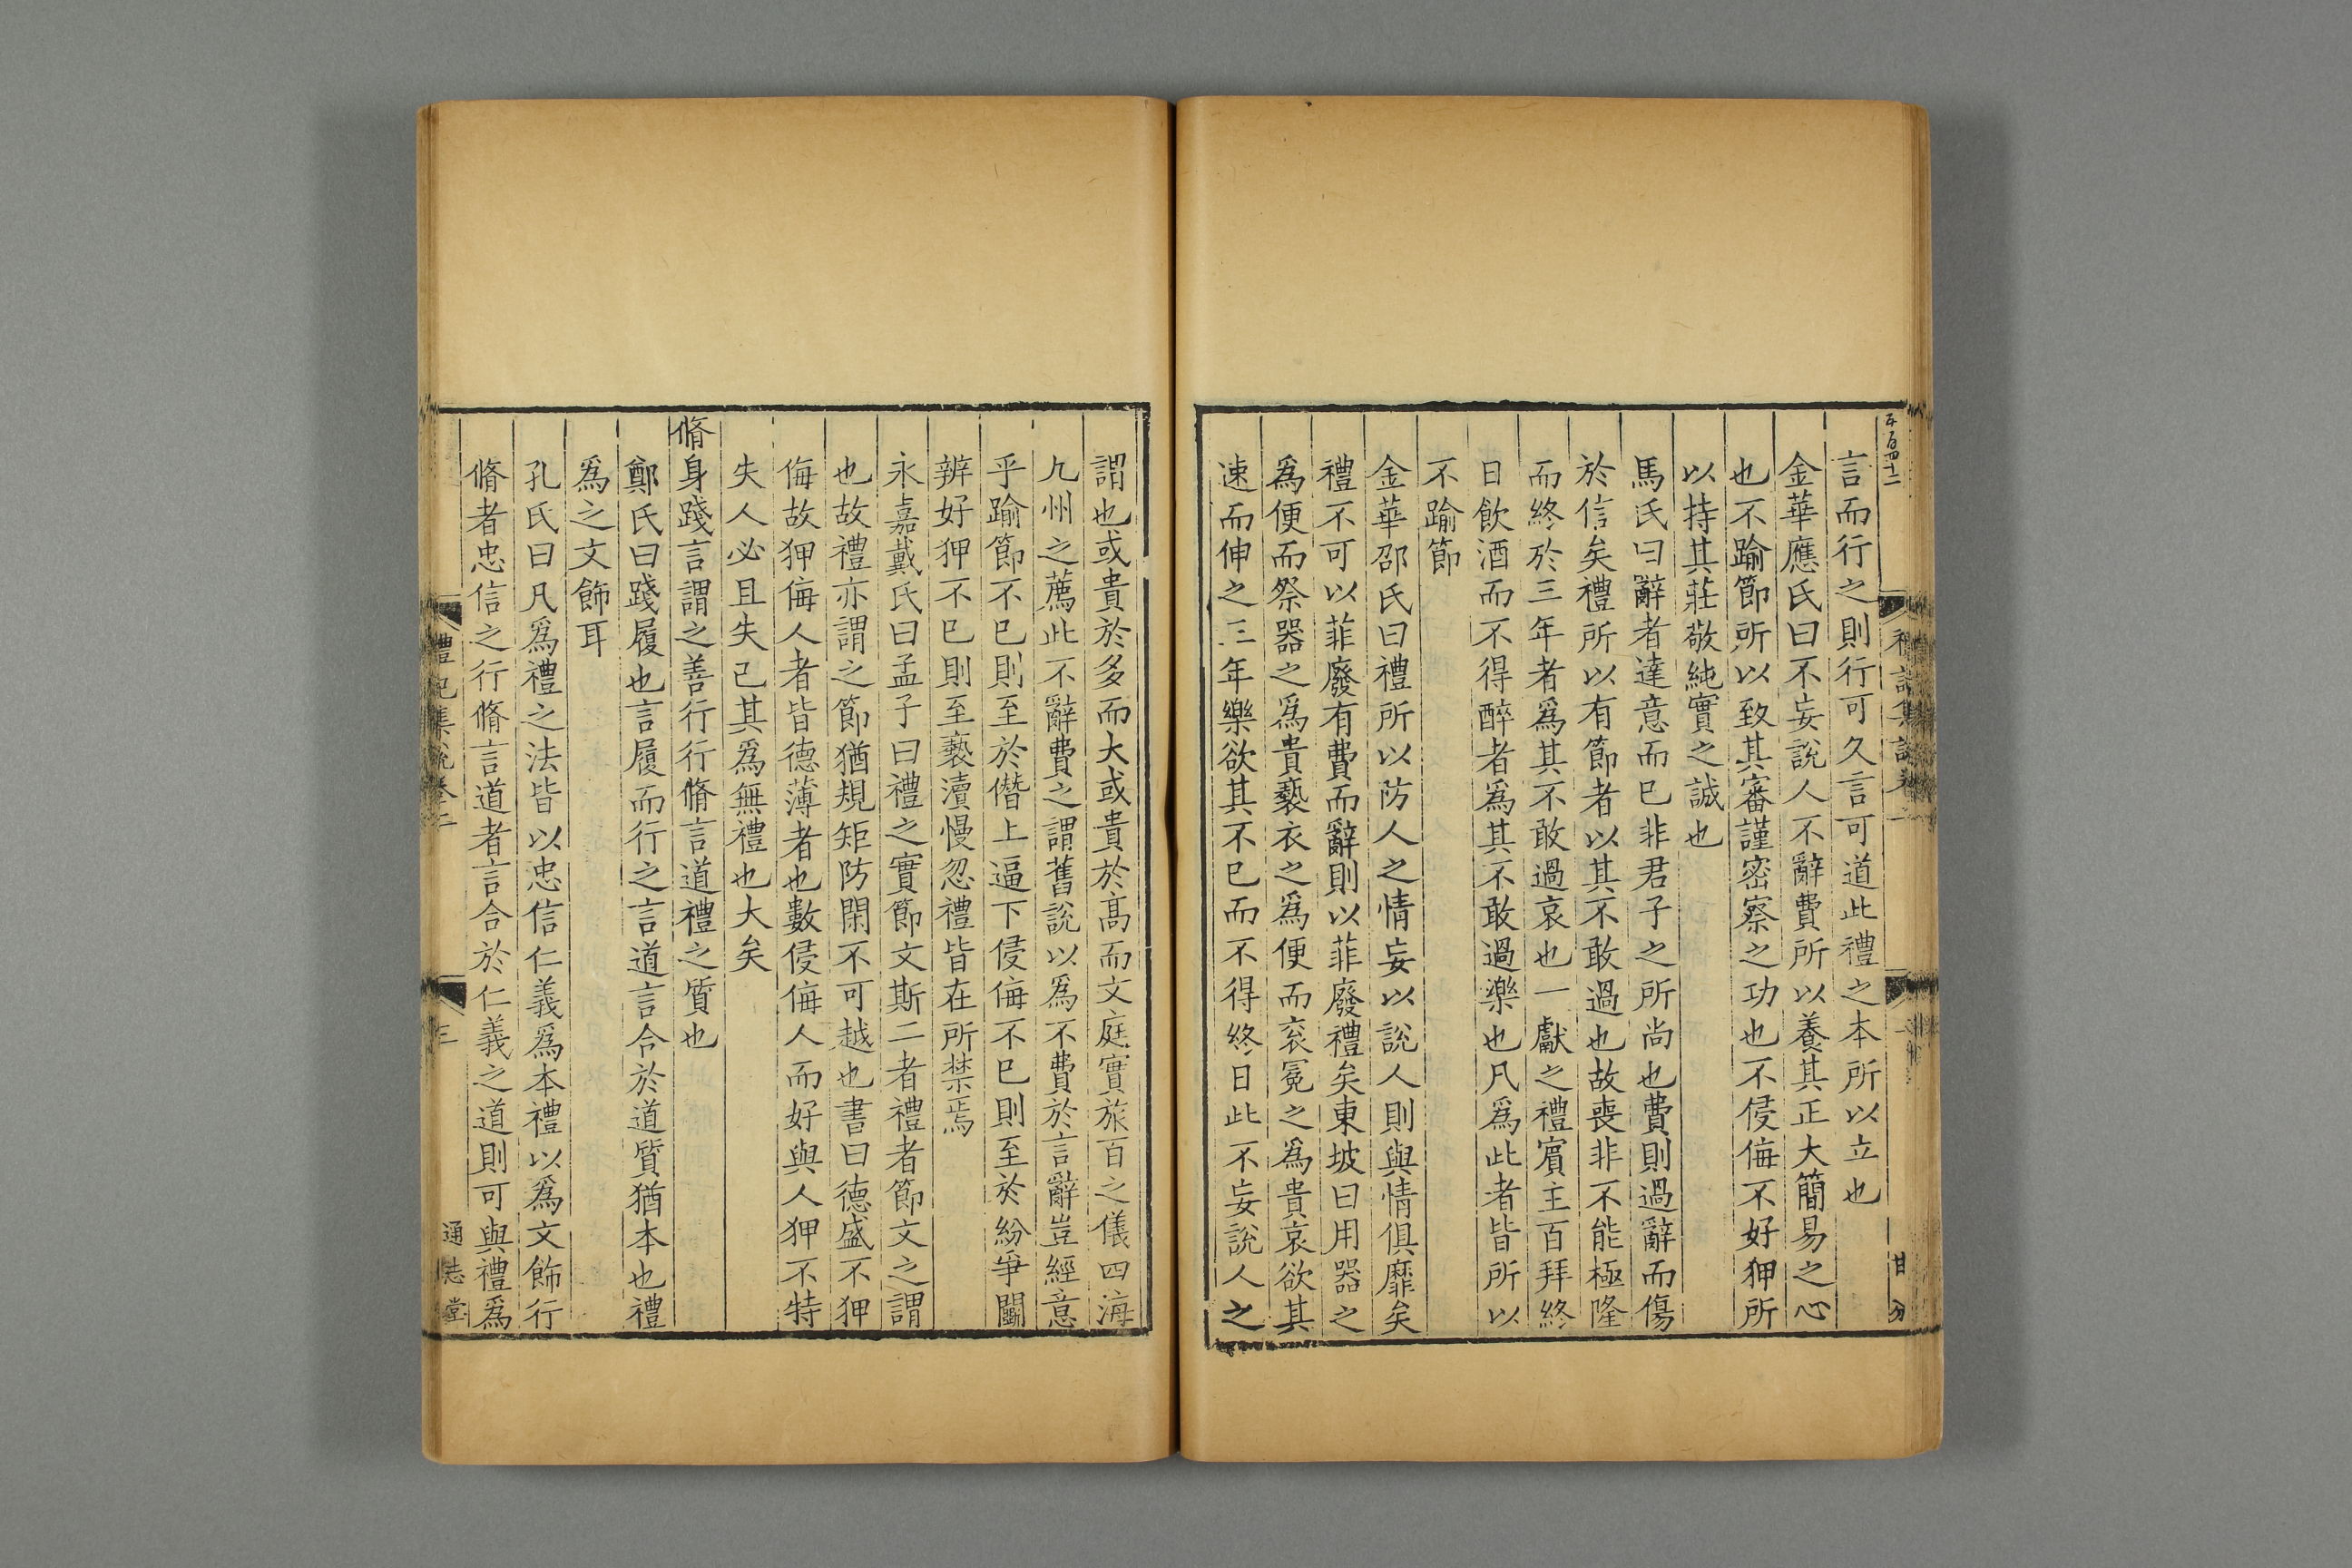 言而行之則行可久言可道此禮之本所以立也
金華應氏曰不妄說人不辭費所以養其正大簡易之心
也不踰節所以致其審謹密察之功也不侵侮不好狎所
以持其莊敬純實之誠也
馬氏曰辭者達意而已非君子之所尚也費則過辭而傷
於信矣禮所以有節者以其不敢過也故喪非不能極隆
而終於三年者爲其不敢過哀也一獻之禮賓主百拜終
日飲酒而不得醉者爲其不敢過樂也凡爲此者皆所以
不踰節
金華邵氏曰禮所以防人之情妄以說人則與情俱靡矣
禮不可以菲廢有費而辭則以菲廢禮矣東坡曰用器之
爲便而祭器之爲貴褻衣之爲便而衮冕之爲貴哀欲其
速而伸之三年樂欲其不已而不得終日此不妄說人之
謂也或貴於多而大或貴於高而文庭實旅百之儀四海
九州之薦此不辭費之謂舊說以爲不費於言辭豈經意
乎踰節不已則至於僭上逼下侵侮不已則至於紛爭鬭
辨好狎不已則至褻瀆慢忽禮皆在所禁焉
永嘉戴氏曰孟子曰禮之實節文斯二者禮者節文之謂
也故禮亦謂之節猶規矩防閑不可越也書曰德盛不狎
侮故狎侮人者皆德薄者也數侵侮人而好與人狎不特
失人必且失己其爲無禮也大矣
脩身踐言謂之善行行脩言道禮之質也
鄭氏曰踐履也言履而行之言道言合於道質猶本也禮
爲之文飾耳
孔氏曰凡爲禮之法皆以忠信仁義爲本禮以爲文飾行
脩者忠信之行脩言道者言合於仁義之道則可與禮爲
禮記集說卷二
三
通志堂